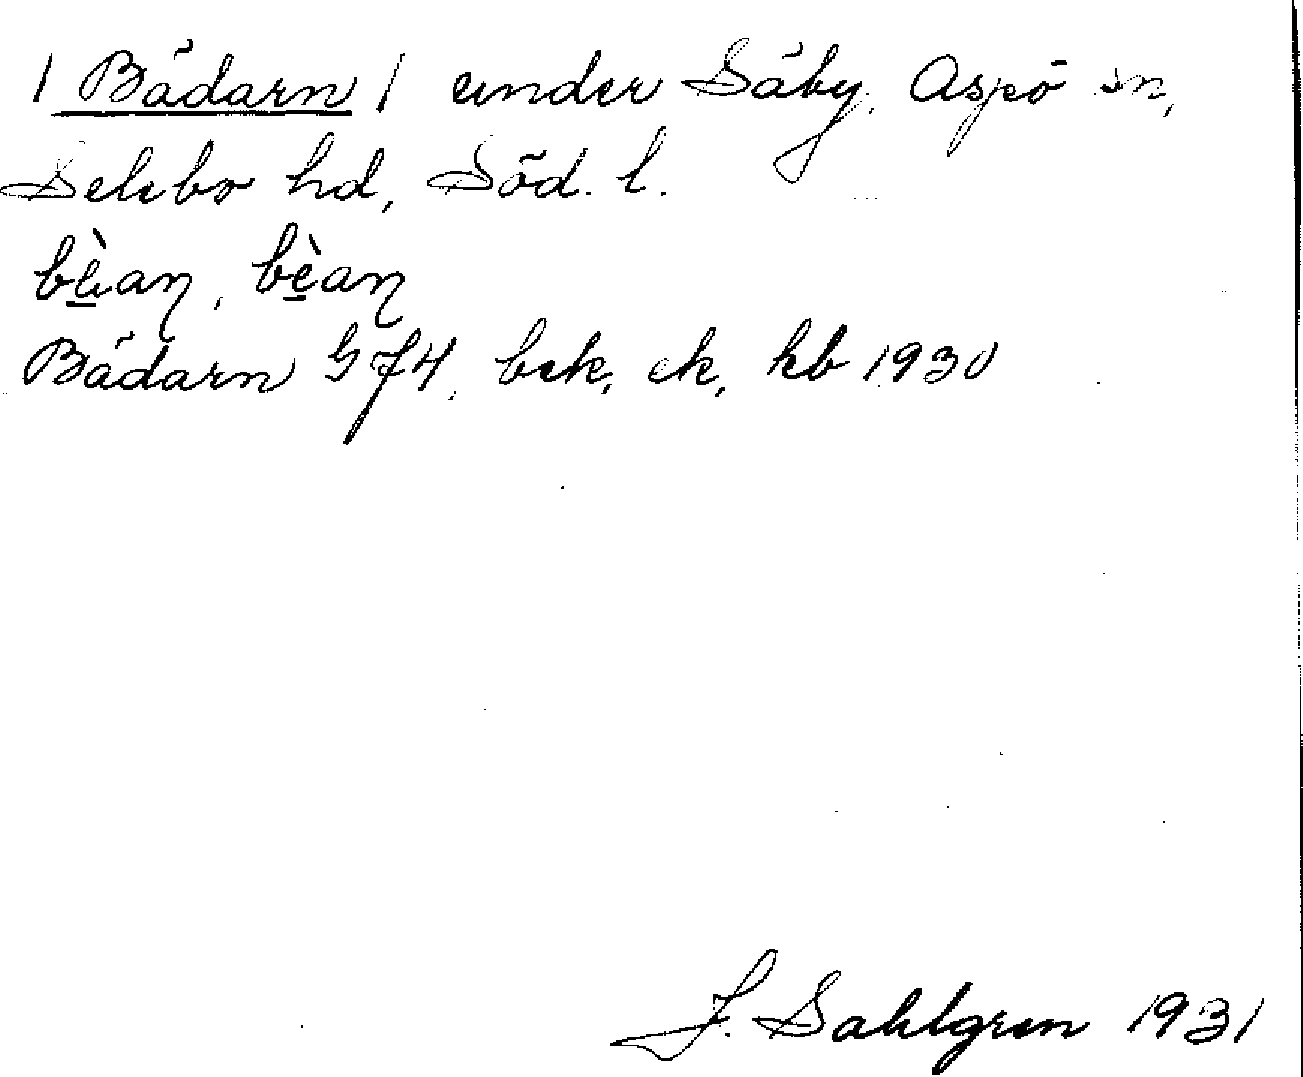 / Bädarn / under Säby, Aspö sn,
Selebo hd, Söd. l.
bèaɳ, bèaɳ
Bädarn G74, bek, ek, kb 1930
J. Sahlgren 1931